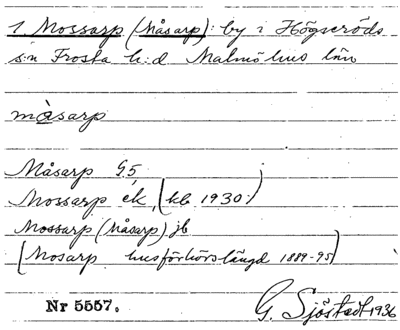 1. Mossarp (Måsarp): by i Högseröds
s:n Frosta h:d Malmöhus län
måsarp
Måsarp G5
Mossarp ek, (kb 1930)
Mossarp (Måsarp) jb
(Mosarp husförhörslängd 1889-95)
Nr 5557. G. Sjöstedt 1936